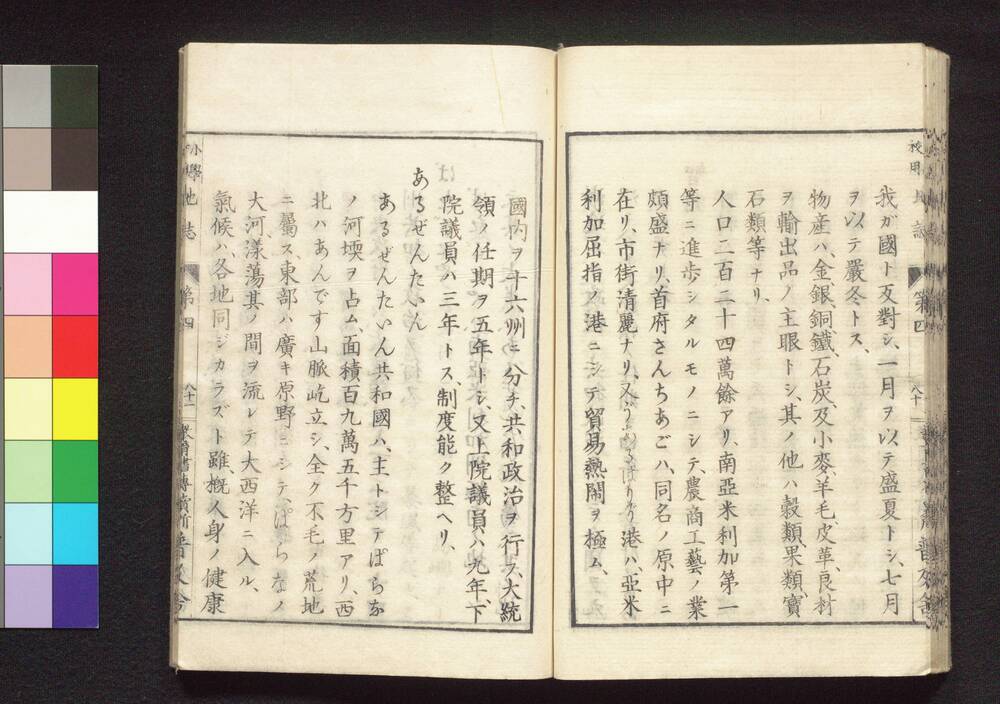 我ガ國ト反對シ、一月ヲ以テ盛夏トシ、七月
ヲ以テ嚴冬トス、
物産ハ、金、銀、銅、鐵、石炭及小麥、羊毛、皮、革、良材
ヲ輸出品ノ主眼トシ、其ノ他ハ穀類、果類、寶
石類等ナリ、
人口二百二十四萬餘アリ、南亞米利加第一
等ニ進歩シタルモノニシテ、農商工藝ノ業
頗盛ナリ、首府さんちあごハ、同名ノ原中ニ
在リ、市街清麗ナリ、又うあるぱりぞ港ハ、亞米
利加屈指ノ港ニシテ貿易熱鬧ヲ極ム、
國内ヲ十六州ニ分チ、共和政治ヲ行フ、大統
領ノ任期ヲ五年トシ、又上院議員ハ九年、下
院議員ハ三年トス、制度能ク整ヘリ、
あるぜんたいん
あるぜんたいん共和國ハ、主トシテぱらな
ノ河堧ヲ占ム、面積百九萬五千方里アリ、西
北ハあんです山脈屹立シ、全ク不毛ノ荒地
ニ屬ス、東部ハ廣キ原野ニシテ、ぱらなノ
大河、漾蕩其ノ間ヲ流レテ大西洋ニ入ル、
氣候ハ、各地同ジカラズト雖、概人身ノ健康
小學地誌
第四
八十一
普及舍
校用地誌
第四
八十
普及舍